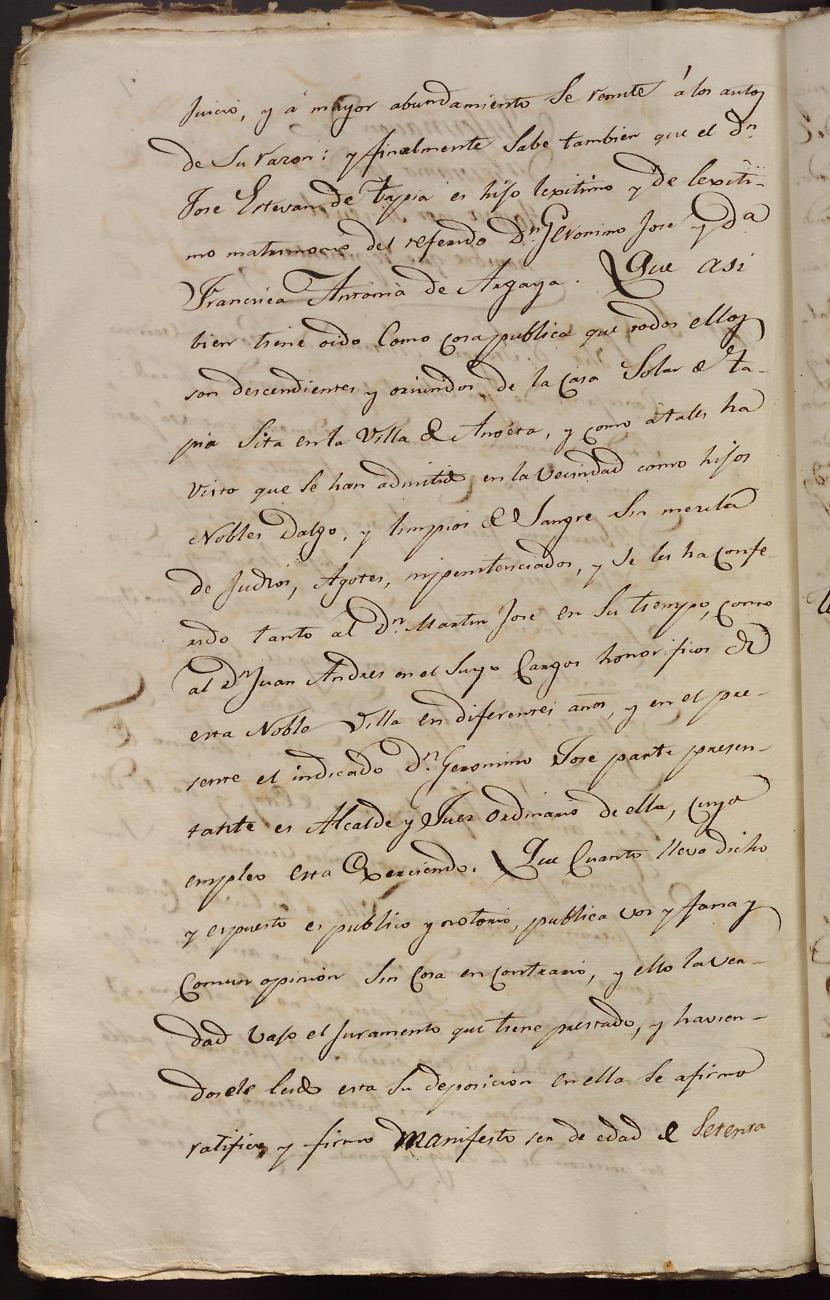 Juicio, y á mayor abundamiento Se remite á los autos
de Su razon: y finalmente Sabe tambien que el Dn.
Jose Estevan de Tapia es hijo lexitimo y de lexiti-
mo matrimonio del referido Dn. Geronimo Jose y Da
Francisca Antonia de Argaya. Que asi
bien tiene oido Como cosa publica que todos ellos
son descendientes y oriundos de la Casa Solar de Ta-
pia Sita en la Villa de Anoeta, y como átales ha
visto que Se han admitido en la Vecindad como hijos
Nobles Dalgo, y limpios de Sangre Sin mezcla
de Judios, Agotes, ni penitenciados, y se les ha confe-
rido tanto al Dn. Martin Jose en Su tiempo, como
al Dn. Juan Andres en el Suyo Cargos honorificos de
esta Noble Villa en diferentes años, y en el pre-
sente el indicado Dn. Geronimo Jose parte presen-
tante es Alcalde y Juez ordinario de ella, cuyo
empleo esta Exerciendo. Que Cuanto lleva dicho
y espuesto es publico y notorio, publica voz y fama y
Comun opinion Sin Cosa en contrario, y ello la ver-
dad vajo el Juramento que tiene prestado, y havien-
dosele leido esta Su deposicion en ella Se afirmo
ratifico, y firmo Manifesto ser de edad de Setenta